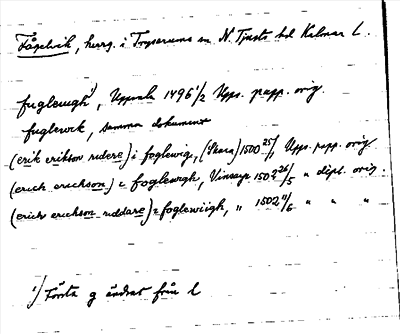 Fågelvik, herrg. i Tryserums sn N. Tjusts hd Kalmar L.
fuglewigh¹⁾, Uppsala 1496 1/2 Upps. papp. orig.
fuglewik, samma dokument
(erik erikson ridere) i foglewig, (Skara) 1500 25/1 Upps. papp. orig
(erich erickson) i foglewigh, 26/5 " dipl. orig.
(erich erickson riddare) i foglewiigh, " 1502 11/6 " " "
¹⁾ Första g ändrat från l